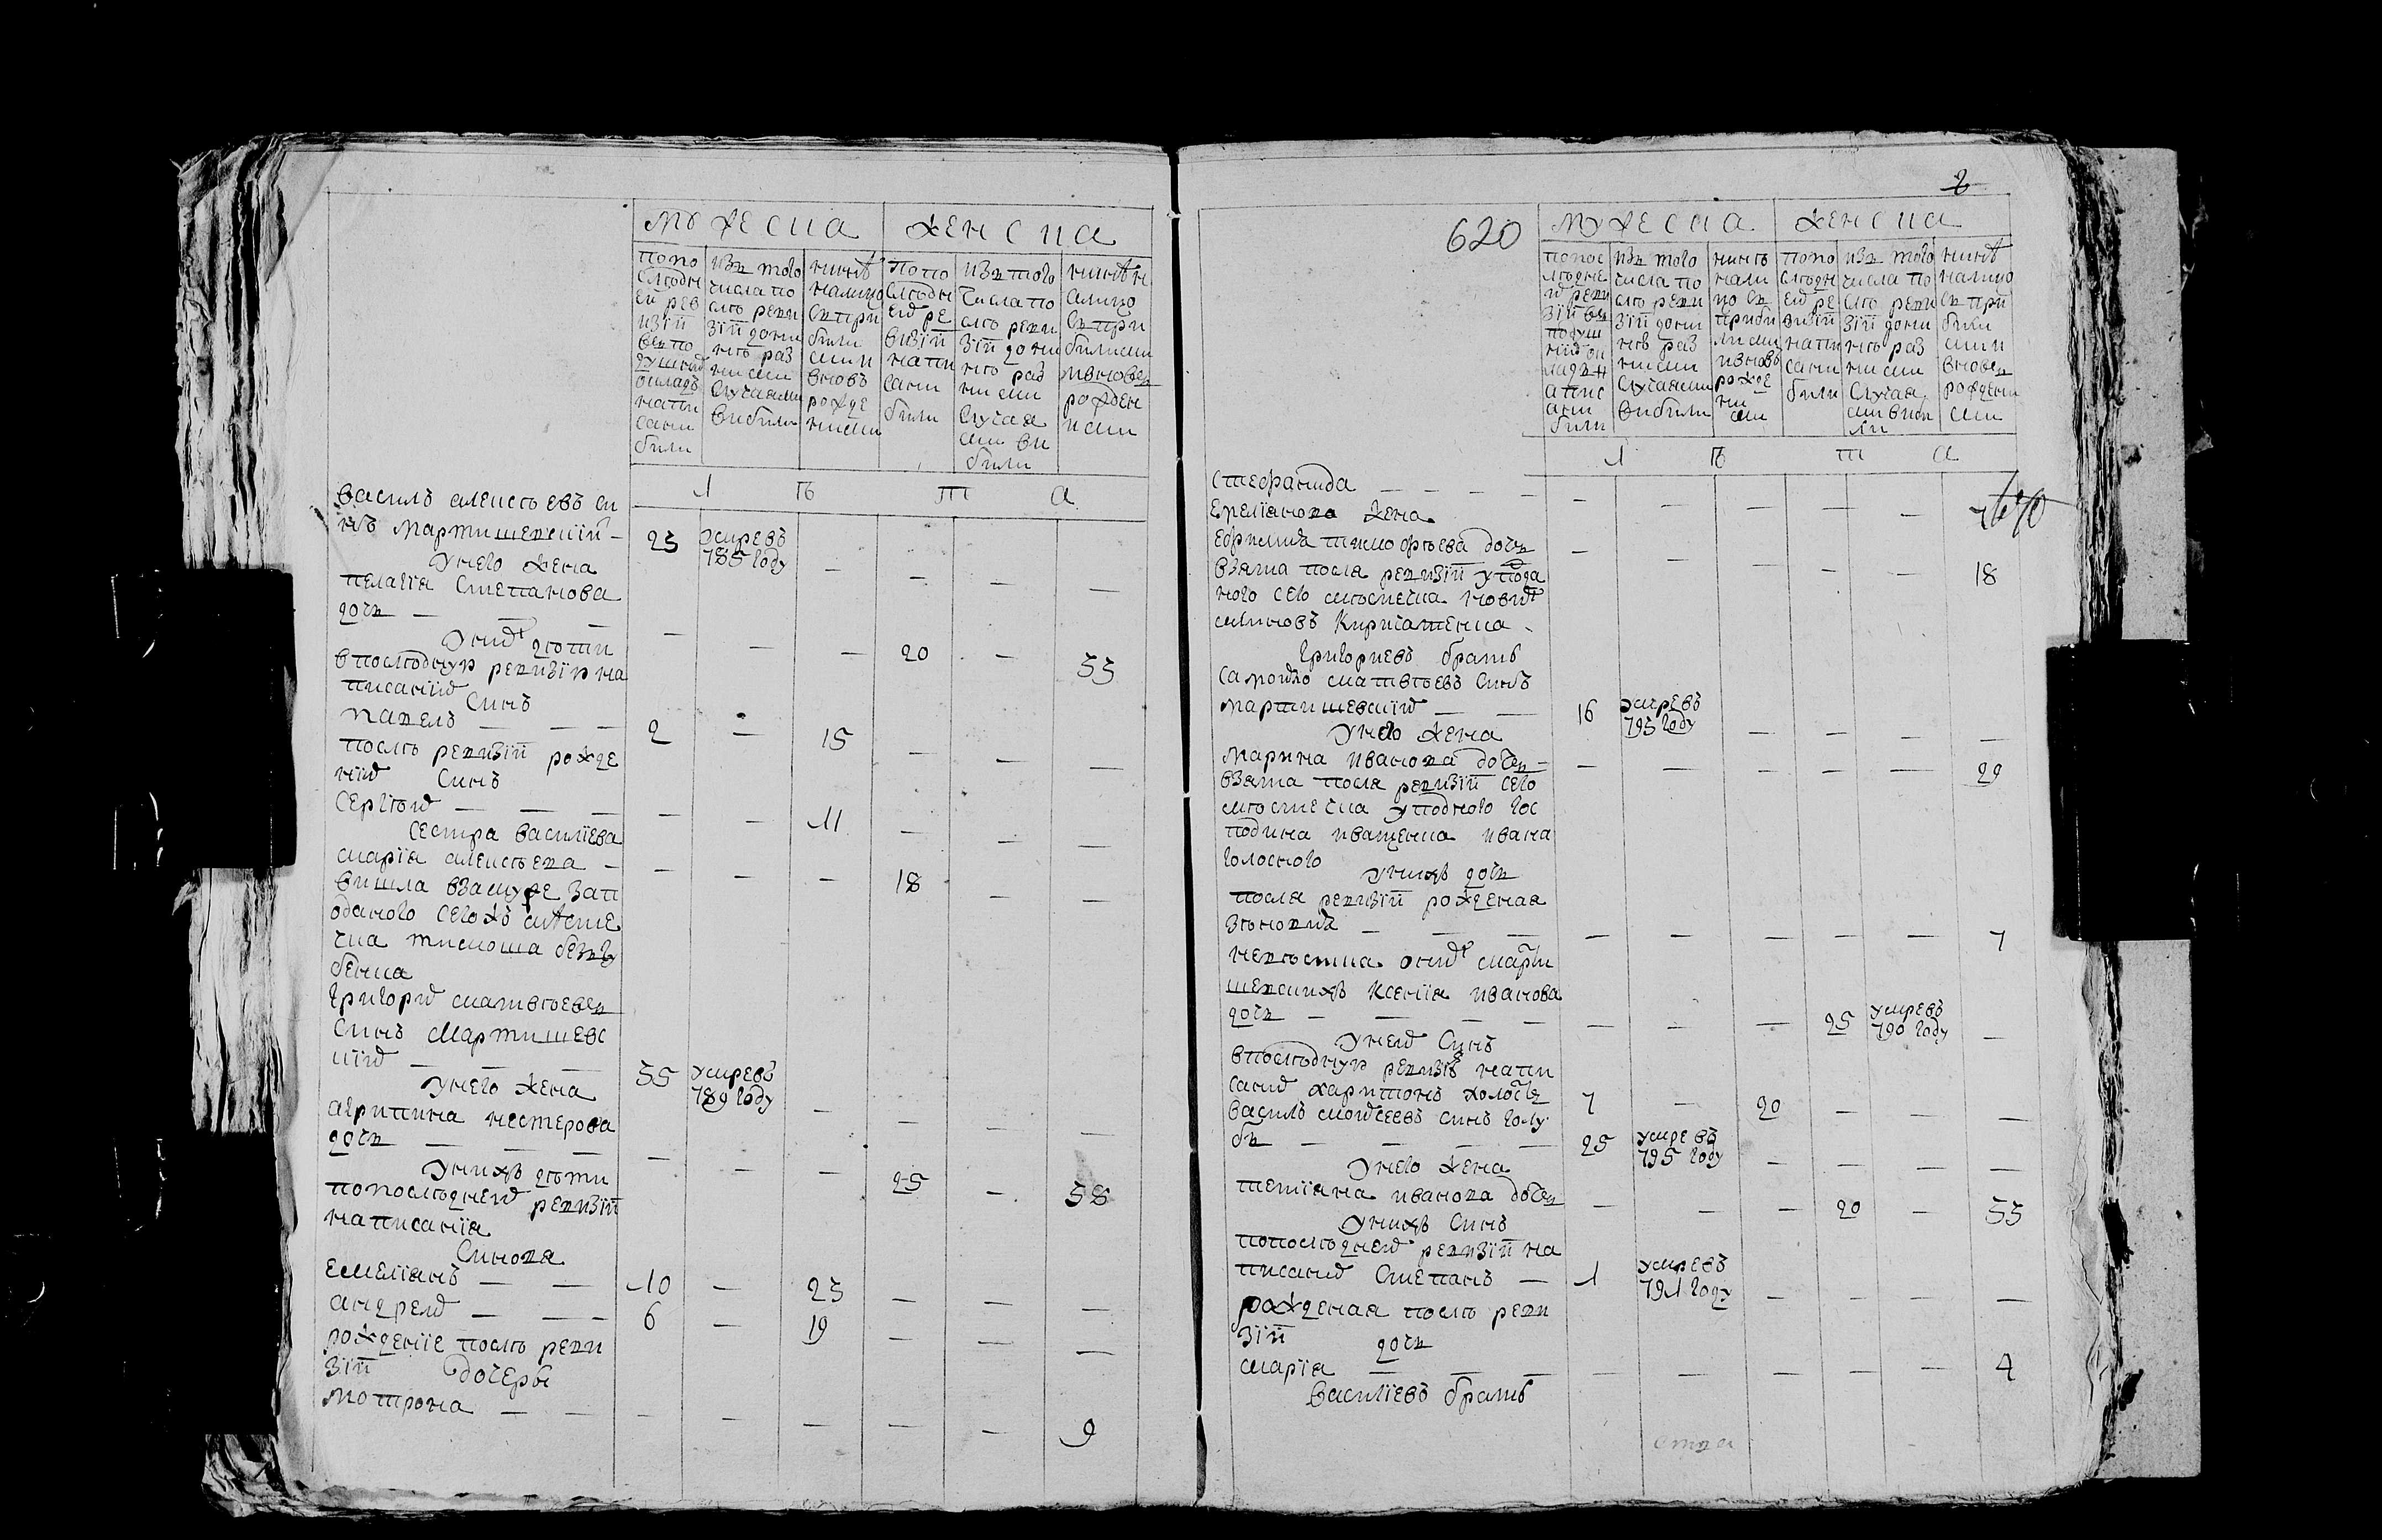 мужеска женска
попо
слѣдн
ей рев
изіи
въ по
душній
окладъ
напи
сани
били
изъ того
числа по
слѣ реви
зіи до ни
нѣ раз
ними
случаями
вибили
нинѣ
налицо
съ при
били
ми и
вновь
рожде
ними
попо
слѣдн
ей ре
визіи
напи
сани
били
изъ того
числа по
слѣ реви
зіи до ни
нѣ раз
ними
случая
ми ви
били
нинѣ н
алицо
съ при
билими
ивновь
рожден
ими
л ѣ т а
василъ алексѣевъ си
нъ мартишевскій – 23 умревъ 785 году – – – –
у него жена
пелагія степанова
дочь – – – – – – 20 – 33
у них дѣти
в послѣдную ревизію на
писаній
синъ
павелъ – – – 2 – 15 – – –
послѣ ревизіи рожде
ній синъ
сергѣй – – – – – 11 – – –
сестра василіева
марія алексѣева – – – – 18 – –
вишла взамуже за п
оданого сегожъ мѣсте
чка тимоша безъ
бенка
григорій матвѣевъ
синъ мартишевс
кій – – – 35 умревъ 789 году – – – –
у него жена
агрипина нестерова
дочь – – – – – – 25 – 38
у нихъ дѣти
попослѣдней ревизіи
написанія
синова
емеліянъ – – 10 – 23 – – –
андрей – – – 6 – 19 – – –
рожденіе послѣ реви
зіи дочери
мотрона – – – – – – – 9
2
620
мужеска женска
попос
лѣдне
й реви
зіи въ
подуш
ній ок
ладъ н
апис
ани
били
изъ того
числа по
слѣ реви
зіи до ни
нѣ раз
ними
случаями
вибили
нинѣ
нали
цо съ
приби
лими
ивновь
рожде
ни
ми
попо
слѣдн
ей ре
визіи
напи
сани
били
изъ того
числа по
слѣ реви
зіи до ни
нѣ раз
ними
случая
ми виби
ли
нинѣ
налицо
съ при
били
ми и
вновь
рождени
ми
л ѣ т а
стефанида – – – – – – – – – –
емеліянова жена
ефимия тимофѣева дочь – – – – – 18
взята после ревизіи у пода
ного сего мѣстечка
григориевъ братъ
самойло матвѣевъ синъ
мартишевскій – – 16 умревъ 793 году – – – –
у него жена
марина иванова дочь – – – – – – 29
взята после ревизіи сего
мѣстечка у подного гос
подина иващенка ивана
голосного
у нихъ дочь
после ревизіи рожденая
зѣновия – – – – – – – – 7
невѣстка оних марти
шевскихъ ксенія иванова
дочь – – – – – – – 25 умревъ 790 году –
у ней синъ
в послѣдную ревизію напи
саній харитонъ холостъ 7 – 20 – – –
василъ мойсеевъ синъ голу
бъ – – – – 25 умревъ 795 году – – – –
у него жена
тетіяна иванова дочь – – – 20 – 33
у нихъ синъ
попослѣдней ревизіи на
писаній степанъ – 1 умревъ 791 году – – – –
рожденая послѣ реви
зіи дочь
марія – – – – – – – 4
василіевъ братъ